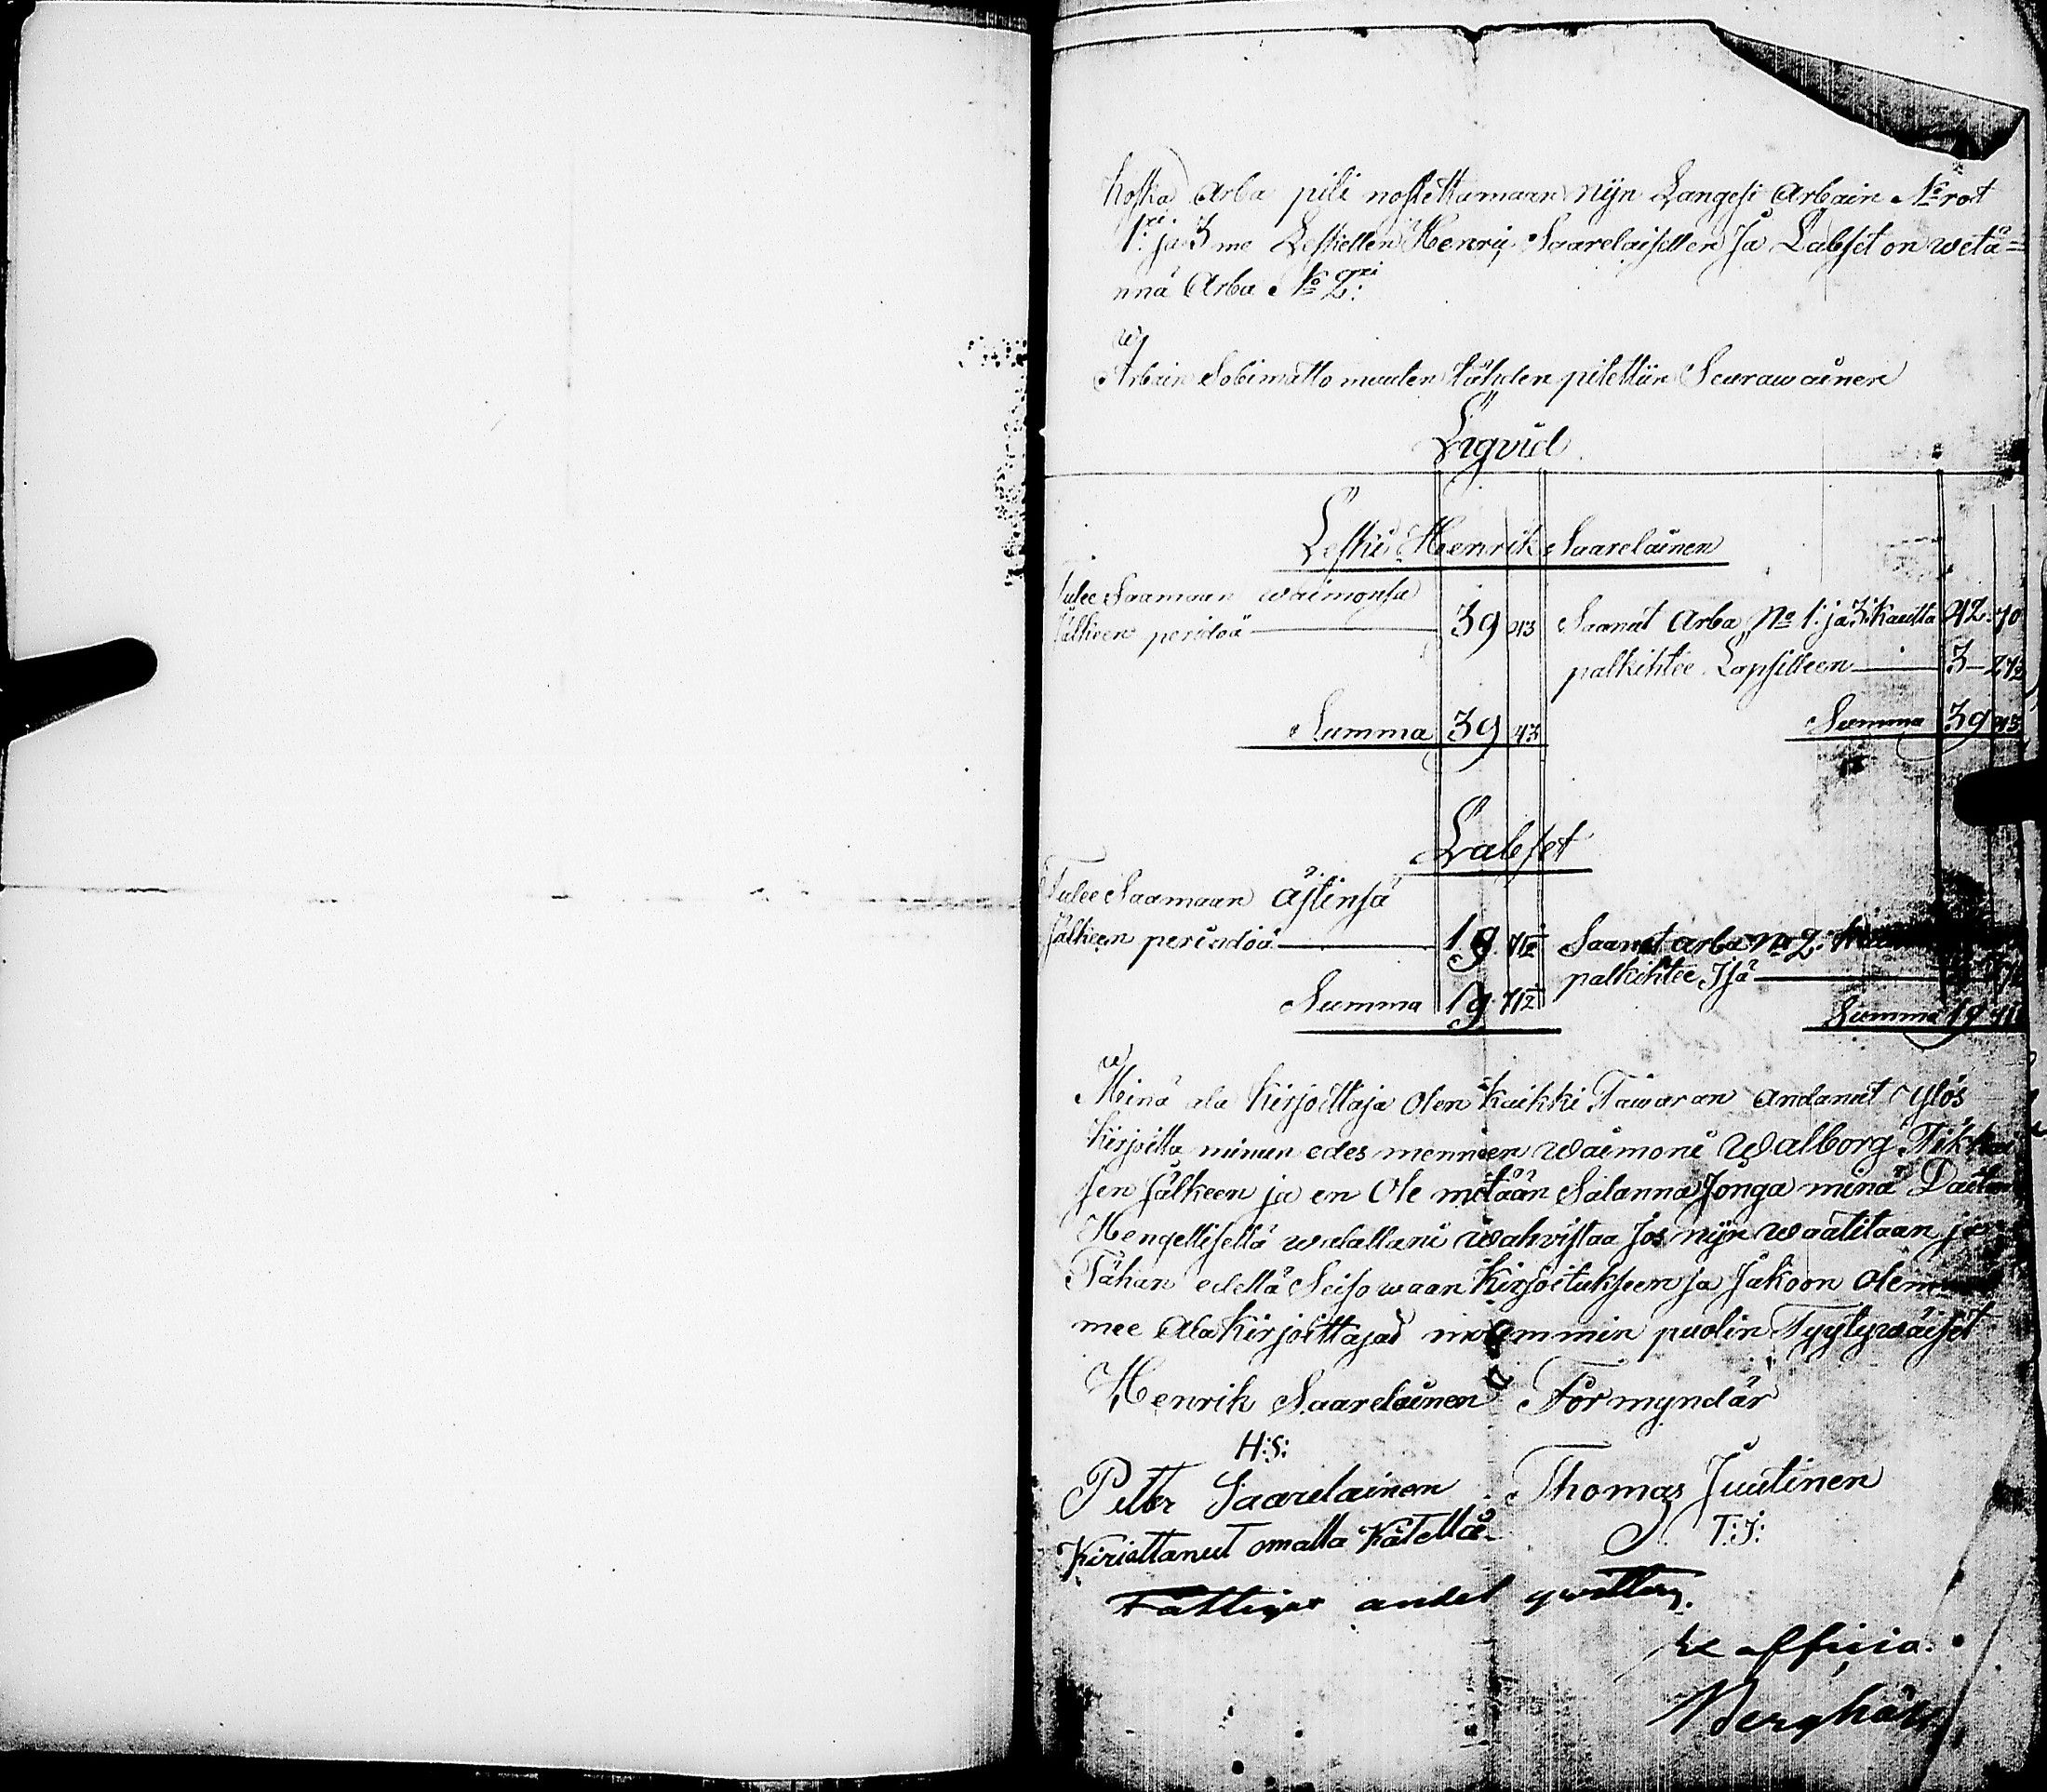 Koska Arba piti nostettamaan nijn Langesi Arbain N:rot
1:ri ja 3:me Leskellen Henrij Saarelaisellen Ja Labset on wetä=
nnä Arba No 2:ri
Arbain Sobimatto muuten tähden pitettiin Seurawainen
Liqvid
Leski Henrik Saarelainen
Tulee Saamaan waimonsa
Jälkeen peridöä 39 43 Saanut Arba No 1: ja 3: Kautta 42 70
palkihtee Lapsilleen 3 27
Summa 39 43 Summa 39 43
Labset
Tulee Saamaan äjtinsä
Jälkeen perindöä 19 71½ Saanut arba No 2:
palkihtee Isä
Summa 19 71½ Summa 19 71
Minä ala Kirjoittaja Olen kaikki Tawaran Andanut Ylös
Kirjoitta minun edes mennien Waimoni Walborg Tikka
sen Jälkeen ja en Ole mitään Salanna Jonga minä
Hengellisellä walallani Wahvistaa Jos nijn waatitaan ja
Tähän edellä Seisowaan Kirjoitukseen ja Jakoon Olem
mee Ala Kirjoittajad molemmin puolin Tyytywäiset
Henrik Saarelainen Formyndär
H:S:
Petter Saarelainen Thomas Juutinen
T:J:
Kiriottanut omalla Kätellä
Fattigas andel qvitteras.
Ex officio.
Berghäll